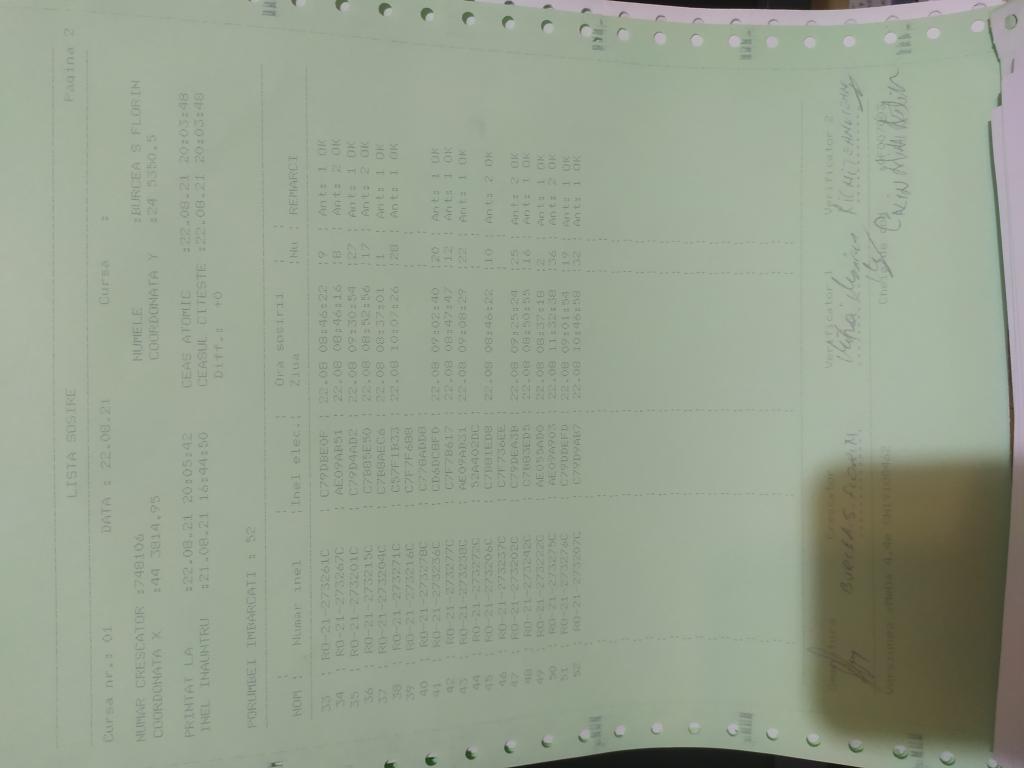 LISTA SOSIRE Pagina 2
Cursa nr.: 01 DATA : 22.08.21 Cursa :
NUMAR CRESCATOR :748106 NUMELE :BURCEA S FLORIN
COORDONATA X :44 3814,95 COORDONATA Y :24 5350,5
PRINTAT LA :22.08.21 20:05:42 CEAS ATOMIC :22.08.21 20:03:48
INEL INAUNTRU :21.08.21 16:44:50 CEASUL CITESTE :22.08.21 20:03:48
Diff.: +0
PORUMBEI IMBARCATI : 52
NOM : Numar inel :Inel elec.: Ora sosirii : : REMARCI
Ziua :Nu
33 : RO-21-273261C : C79D8E0F : 22.08 08:46:22 : 9 : Ant: 1 OK
34 : RO-21-273267C : AE09AB51 : 22.08 08:46:16 : 8 : Ant: 2 OK
35 : RO-21-273201C : C79D4AD2 : 22.08 09:30:54 : 27 : Ant: 1 OK
36 : RO-21-273215C : C78B5E50 : 22.08 08:52:56 : 17 : Ant: 2 OK
37 : RO-21-273204C : C78BAEC6 : 22.08 08:37:01 : 1 : Ant: 1 OK
38 : RO-21-273271C : C57F1B33 : 22.08 10:07:26 : 28 : Ant: 1 OK
39 : RO-21-273216C : C77FA688
40 : RO-21-273278C : C778ADD8
41 : RO-21-273236C : CD6DCBFD : 22.08 09:02:40 : 20 : Ant: 1 OK
42 : RO-21-273277C : C77F8617 : 22.08 08:47:47 : 12 : Ant: 1 OK
43 : RO-21-273238C : AE09AA31 : 22.08 09:08:29 : 22 : Ant: 1 OK
44 : RO-21-273272C : 52A402DC
45 : RO-21-273206C : C7D81ED8 : 22.08 08:46:22 : 10 : Ant: 2 OK
46 : RO-21-273237C : C7F736EE
47 : RO-21-273202C : C79DEA3B : 22.08 09:25:24 : 25 : Ant: 2 OK
48 : RO-21-273242C : C7A83ED5 : 22.08 08:50:55 : 16 : Ant: 1 OK
49 : RO-21-273222C : AE055AD0 : 22.08 08:37:18 : 2 : Ant: 1 OK
50 : RO-21-273279C : AE09A903 : 22.08 11:32:38 : 36 : Ant: 2 OK
51 : RO-21-273276C : C79DDEFD : 22.08 09:01:54 : 19 : Ant: 1 OK
52 : RO-21-273207C : C79D9AD7 : 22.08 10:46:58 : 32 : Ant: 1 OK
Semnatura Crescator Verificator Verificator 2
BURCEA S. FLORIN